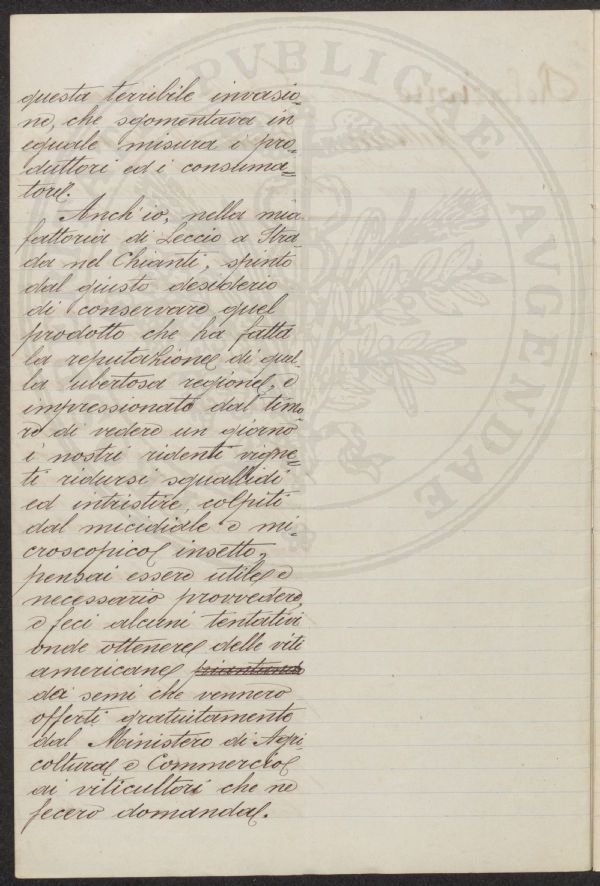 questa terribile invasio=
ne, che sgomentava in
eguale misura i pro=
duttori ed i consuma=
tori.
Anch'io, nella mia
fattoria di Leccio a Stra=
da nel Chianti, spinto
dal giusto desiderio
di conservare quel
prodotto che ha fatta
la reputazione di quel=
la ubertosa regione, e
impressionato dal timo=
re di vedere un giorno
i nostri ridenti vigne=
ti ridursi squallidi
ed intristire, colpiti
dal micidiale e mi=
croscopico insetto,
pensai essere utile e
necessario provvedere,
e feci alcuni tentativi
onde ottenere delle viti
americane piantando
dai semi che vennero
offerti gratuitamente
dal Ministero di Agri=
coltura e Commercio
ai viticultori che ne
fecero domanda.
PVBLICAE
AVGENDAE